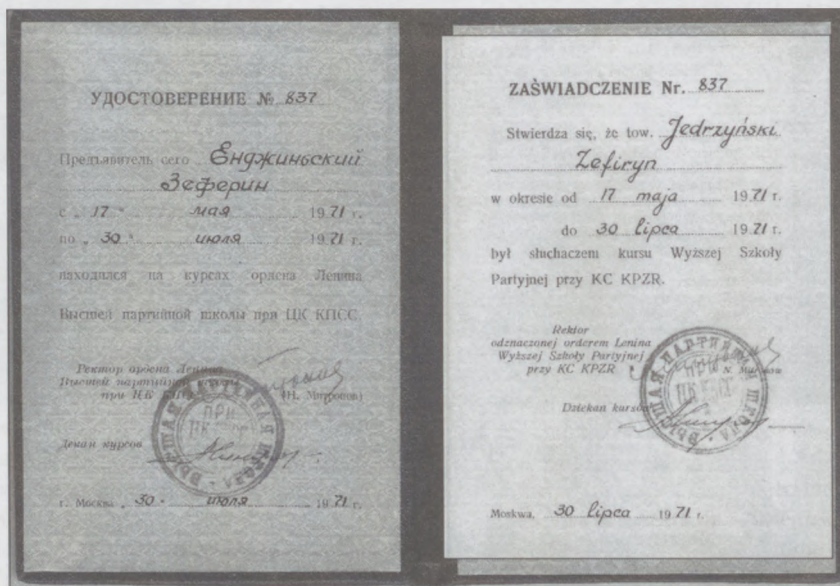 УДОСТОВЕРЕНИЕ № 837
Предъявитель сего Енджиньский
Зеферин
с „ 17 “ мая 1971 г.
по „ 30 “ июля 1971 г.
находился на курсах ордена Ленина
Высшей партийной школы при ЦК КПСС.
Ректор ордена Ленина
Высшей партийной школы
при ЦК КПСС (Н. Митронов)
Декан курсов
ВЫСШАЯ ПАРТИЙНАЯ ШКОЛА
ПРИ
ЦК КПСС
г. Москва „ 30 “ июля 1971 г.
ZAŚWIADCZENIE Nr. 837
Stwierdza się, że tow. Jedrzyński
Zefiryn
w okresie od 17 maja 1971 r.
do 30 lipca 1971 r.
był słuchaczem kursu Wyższej Szkoły
Partyjnej przy KC KPZR.
Rektor
odznaczonej orderem Lenina
Wyższej Szkoły Partyjnej
przy KC KPZR N.
Dziekan kursów
ВЫСШАЯ ПАРТИЙНАЯ ШКОЛА
ПРИ
ЦК КПСС
Moskwa, 30 lipca 1971 r.